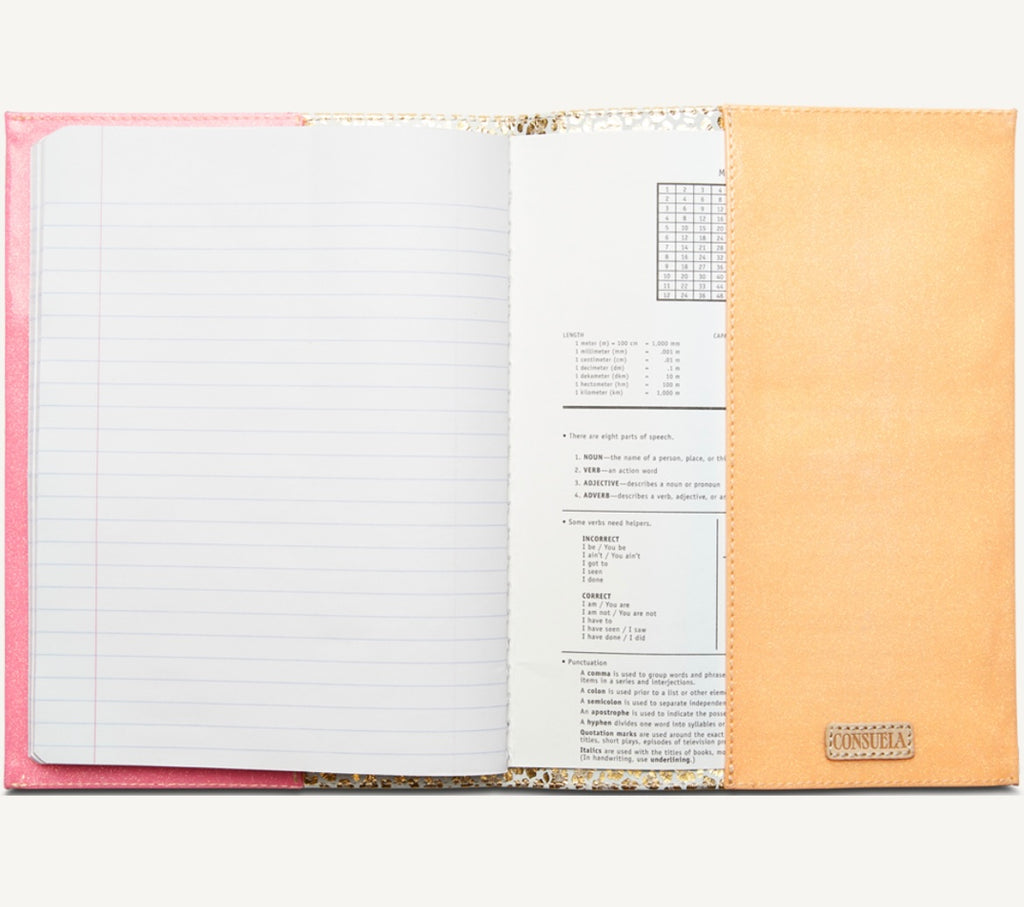 M
1 2 3 4
2 4 6 8
3 6 9 12
4 8 12 16
5 10 15 20
6 12 18 24
7 14 21 28
8 16 24 32
9 18 27 36
10 20 30 40
11 22 33 44
12 24 36 48
LENGTH CAPA
1 meter (m) = 100 cm = 1,000 mm
1 millimeter (mm) = .001 m
1 centimeter (cm) = .01 m
1 decimeter (dm) = .1 m
1 dekameter (dkm) = 10 m
1 hectometer (hm) = 100 m
1 kilometer (km) = 1,000 m
• There are eight parts of speech.
1. NOUN—the name of a person, place, or thi
2. VERB—an action word
3. ADJECTIVE—describes a noun or pronoun
4. ADVERB—describes a verb, adjective, or an
• Some verbs need helpers.
INCORRECT
I be / You be
I ain't / You ain't
I got to
I seen
I done
CORRECT
I am / You are
I am not / You are not
I have to
I have seen / I saw
I have done / I did
• Punctuation
A comma is used to group words and phrase
items in a series and interjections.
A colon is used prior to a list or other elem
A semicolon is used to separate independen
An apostrophe is used to indicate the posse
A hyphen divides one word into syllables or
Quotation marks are used around the exact
titles, short plays, episodes of television pr
Italics are used with the titles of books, mo
(In handwriting, use underlining.)
CONSUELA